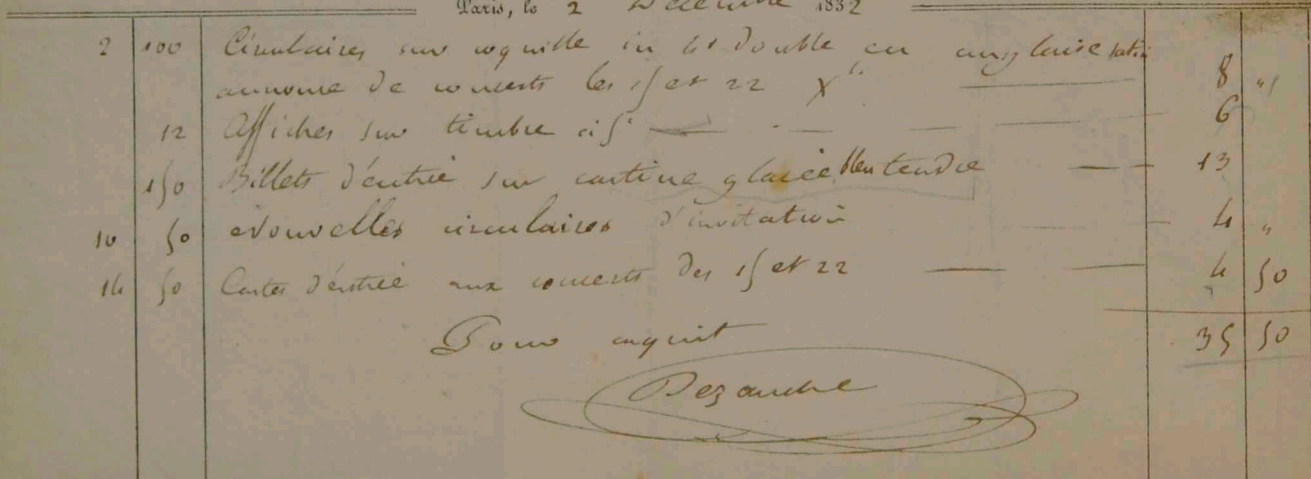 Paris, le 2 Décembre 1832
2 100 Circulaires sur coquille in 4º double en anglaise satin
annonce de concerts les 15 et 22 Xbre 8 "
12 Affiches sur timbre à 5c 6
150 Billets d'entrée sur cartine glacée bleu tendre 13
10 50 Nouvelles circulaires d'invitation 4 "
14 50 Cartes d'entrée aux concerts des 15 et 22 4 50
Pour acquit 35 50
Dezauche